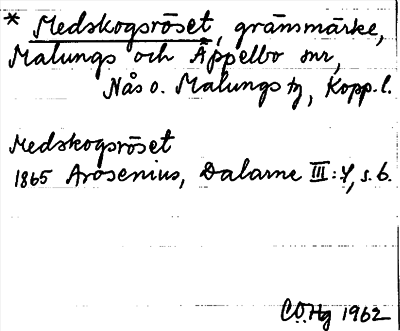 * Medskogsröset, gränsmärke,
Malungs och Äppelbo snr,
Nås o. Malungs tg, Kopp. l.
Medskogsröset
1865 Arosenius, Dalarne III:4, s. 6.
C.O.Hg 1962